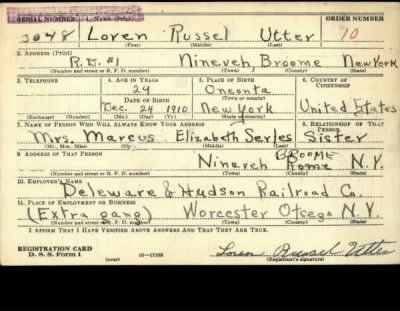 SERIAL NUMBER 1. NAME (Print) ORDER NUMBER
3048 Loren Russel Utter 10
(First) (Middle) (Last)
2. ADDRESS (Print)
R.D. #1 Nineveh, Broome New York
(Number and street or R. F. D. number) (Town) (County) (State)
3. TELEPHONE 4. AGE IN YEARS 5. PLACE OF BIRTH 6. COUNTRY OF CITIZENSHIP
29 Oneonta
DATE OF BIRTH (Town or county)
Dec. 24 1910 New York United States
(Exchange) (Number) (Mo.) (Day) (Yr.) (State or country)
7. NAME OF PERSON WHO WILL ALWAYS KNOW YOUR ADDRESS 8. RELATIONSHIP OF THAT PERSON
Mrs. Marcus Elizabeth Serles Sister
(Mr., Mrs., Miss) (First) (Middle) (Last)
9. ADDRESS OF THAT PERSON BROOME
Nineveh Rome N.Y.
(Number and street or R. F. D. number) (Town) (County) (State)
10. EMPLOYER'S NAME
Deleware & Hudson Railroad Co.
11. PLACE OF EMPLOYMENT OR BUSINESS
(Extra gang) Worcester Otsego N.Y.
(Number and street or R. F. D. number) (Town) (County) (State)
I AFFIRM THAT I HAVE VERIFIED ABOVE ANSWERS AND THAT THEY ARE TRUE.
REGISTRATION CARD
D. S. S. Form 1 (over) 16—17105 Loren Russel Utter
(Registrant's signature)